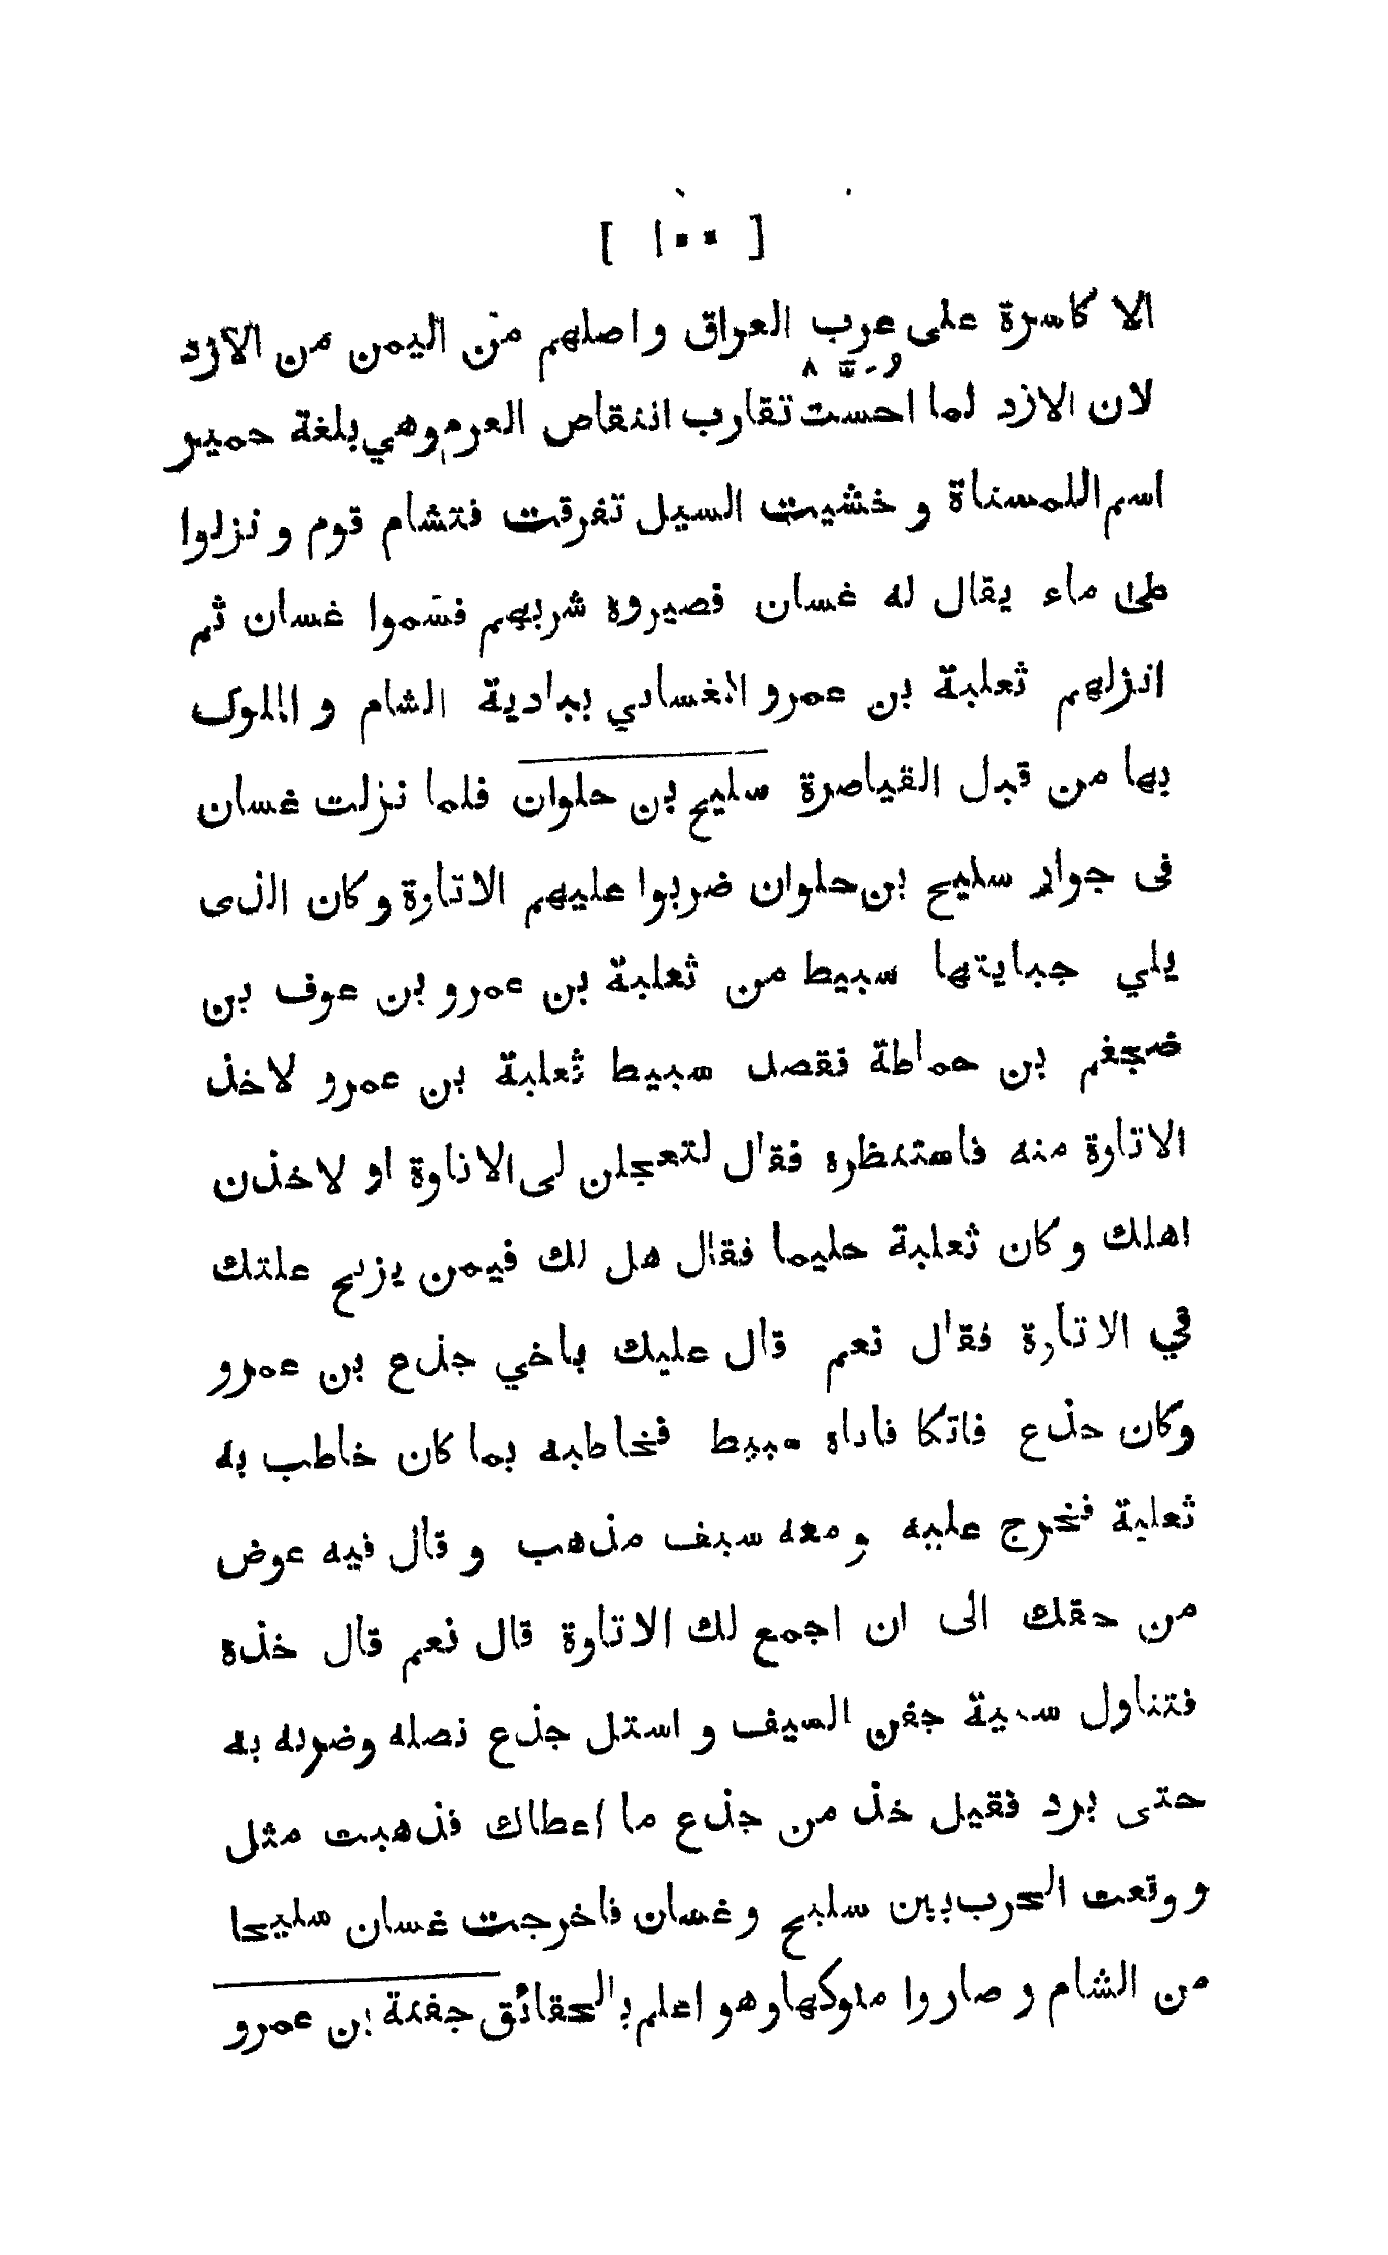 [ ١٠٠ ]
الا كاسرة على عرب العراق و اصلهم من اليمن من الازد
لان الازد لما احست تقارب انتقاص العرم وهي بلغة حمير
اسم اللمسناة و خشيت السيل تفرقت فتشام قوم و نزلوا
على ماء يقال له غسان فصيروة شربهم فسموا غسان ثم
انزلهم ثعلبة بن عمرو الغساني ببادية الشام و الملوك
بها من قبل القياصرة سليح بن حلوان فلما نزلت غسان
فى جوار سليح بن حلوان ضربوا عليهم الاتاوة و كان الذى
يلي جبايتها سبيط من ثعلبة بن عمرو بن عوف بن
ضجغم بن حماطة فقصد سبيط ثعلبة بن عمرو لاخذ
الاتاوة منه فاستنظره فقال لتعجلن لى الاتاوة او لاخذن
اهلك و كان ثعلبة حليما فقال هل لك فيمن يزيح علتك
في الاتاوة فقال نعم قال عليك باخي جذع بن عمرو
وكان جذع فاتكا فاتاه سبيط فخاطبه بما كان خاطب به
ثعلبة فخرج عليه و معه سيف مذهب و قال فيه عوض
من حقك الى ان اجمع لك الاتاوة قال نعم قال خذة
فتناول سبية جفن السيف و استل جذع نصله وضربه به
حتى برد فقيل خذ من جذع ما اعطاك فذهبت مثل
و وقعت الحرب بين سليح و غسان فاخرجت غسان سليحا
من الشام و صاروا ملوكها وهو اعلم بالحقائق جفنة بن عمرو